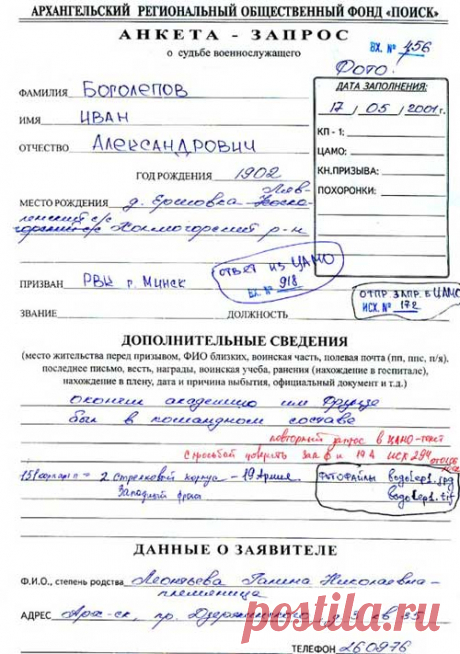 АРХАНГЕЛЬСКИЙ РЕГИОНАЛЬНЫЙ ОБЩЕСТВЕННЫЙ ФОНД «ПОИСК»
АНКЕТА - ЗАПРОС
о судьбе военнослужащего
ВХ. № 456
ФОТО.
ФАМИЛИЯ БОГОЛЕПОВ
ИМЯ ИВАН
ОТЧЕСТВО АЛЕКСАНДРОВИЧ
ГОД РОЖДЕНИЯ 1902
МЕСТО РОЖДЕНИЯ д. Ершовка
Холмогорский р-н
ДАТА ЗАПОЛНЕНИЯ:
17 / 05 / 2001 г.
КП - 1:
ЦАМО:
КН.ПРИЗЫВА:
ПОХОРОНКИ:
ПРИЗВАН РВК г. Минск
ОТВЕТ ИЗ ЦАМО
ВХ. № 918
ОТПР. ЗАПР. В ЦАМО
ИСХ. № 172
ЗВАНИЕ ДОЛЖНОСТЬ
ДОПОЛНИТЕЛЬНЫЕ СВЕДЕНИЯ
(место жительства перед призывом, ФИО близких, воинская часть, полевая почта (пп, ппс, п/я).
последнее письмо, весть, награды, воинская учеба, ранения (нахождение в госпитале),
нахождение в плену, дата и причина выбытия, официальный документ и т.д.)
окончил академию им Фрунзе
был в командном составе
повторный запрос в ЦАМО
с просьбой проверить ЗапФ и 19 А ИСХ 294
2 стрелкового корпуса - 19 Армия
Западный фронт
ФОТОФАЙЛЫ Bogolep1.jpg
Bogolep1.tif
ДАННЫЕ О ЗАЯВИТЕЛЕ
Ф.И.О., степень родства Леонтьева Галина Николаевна -
племяница
АДРЕС Арх-ск, пр. Дзержинского, д. 3 кв 85
ТЕЛЕФОН 260976
postila.ru